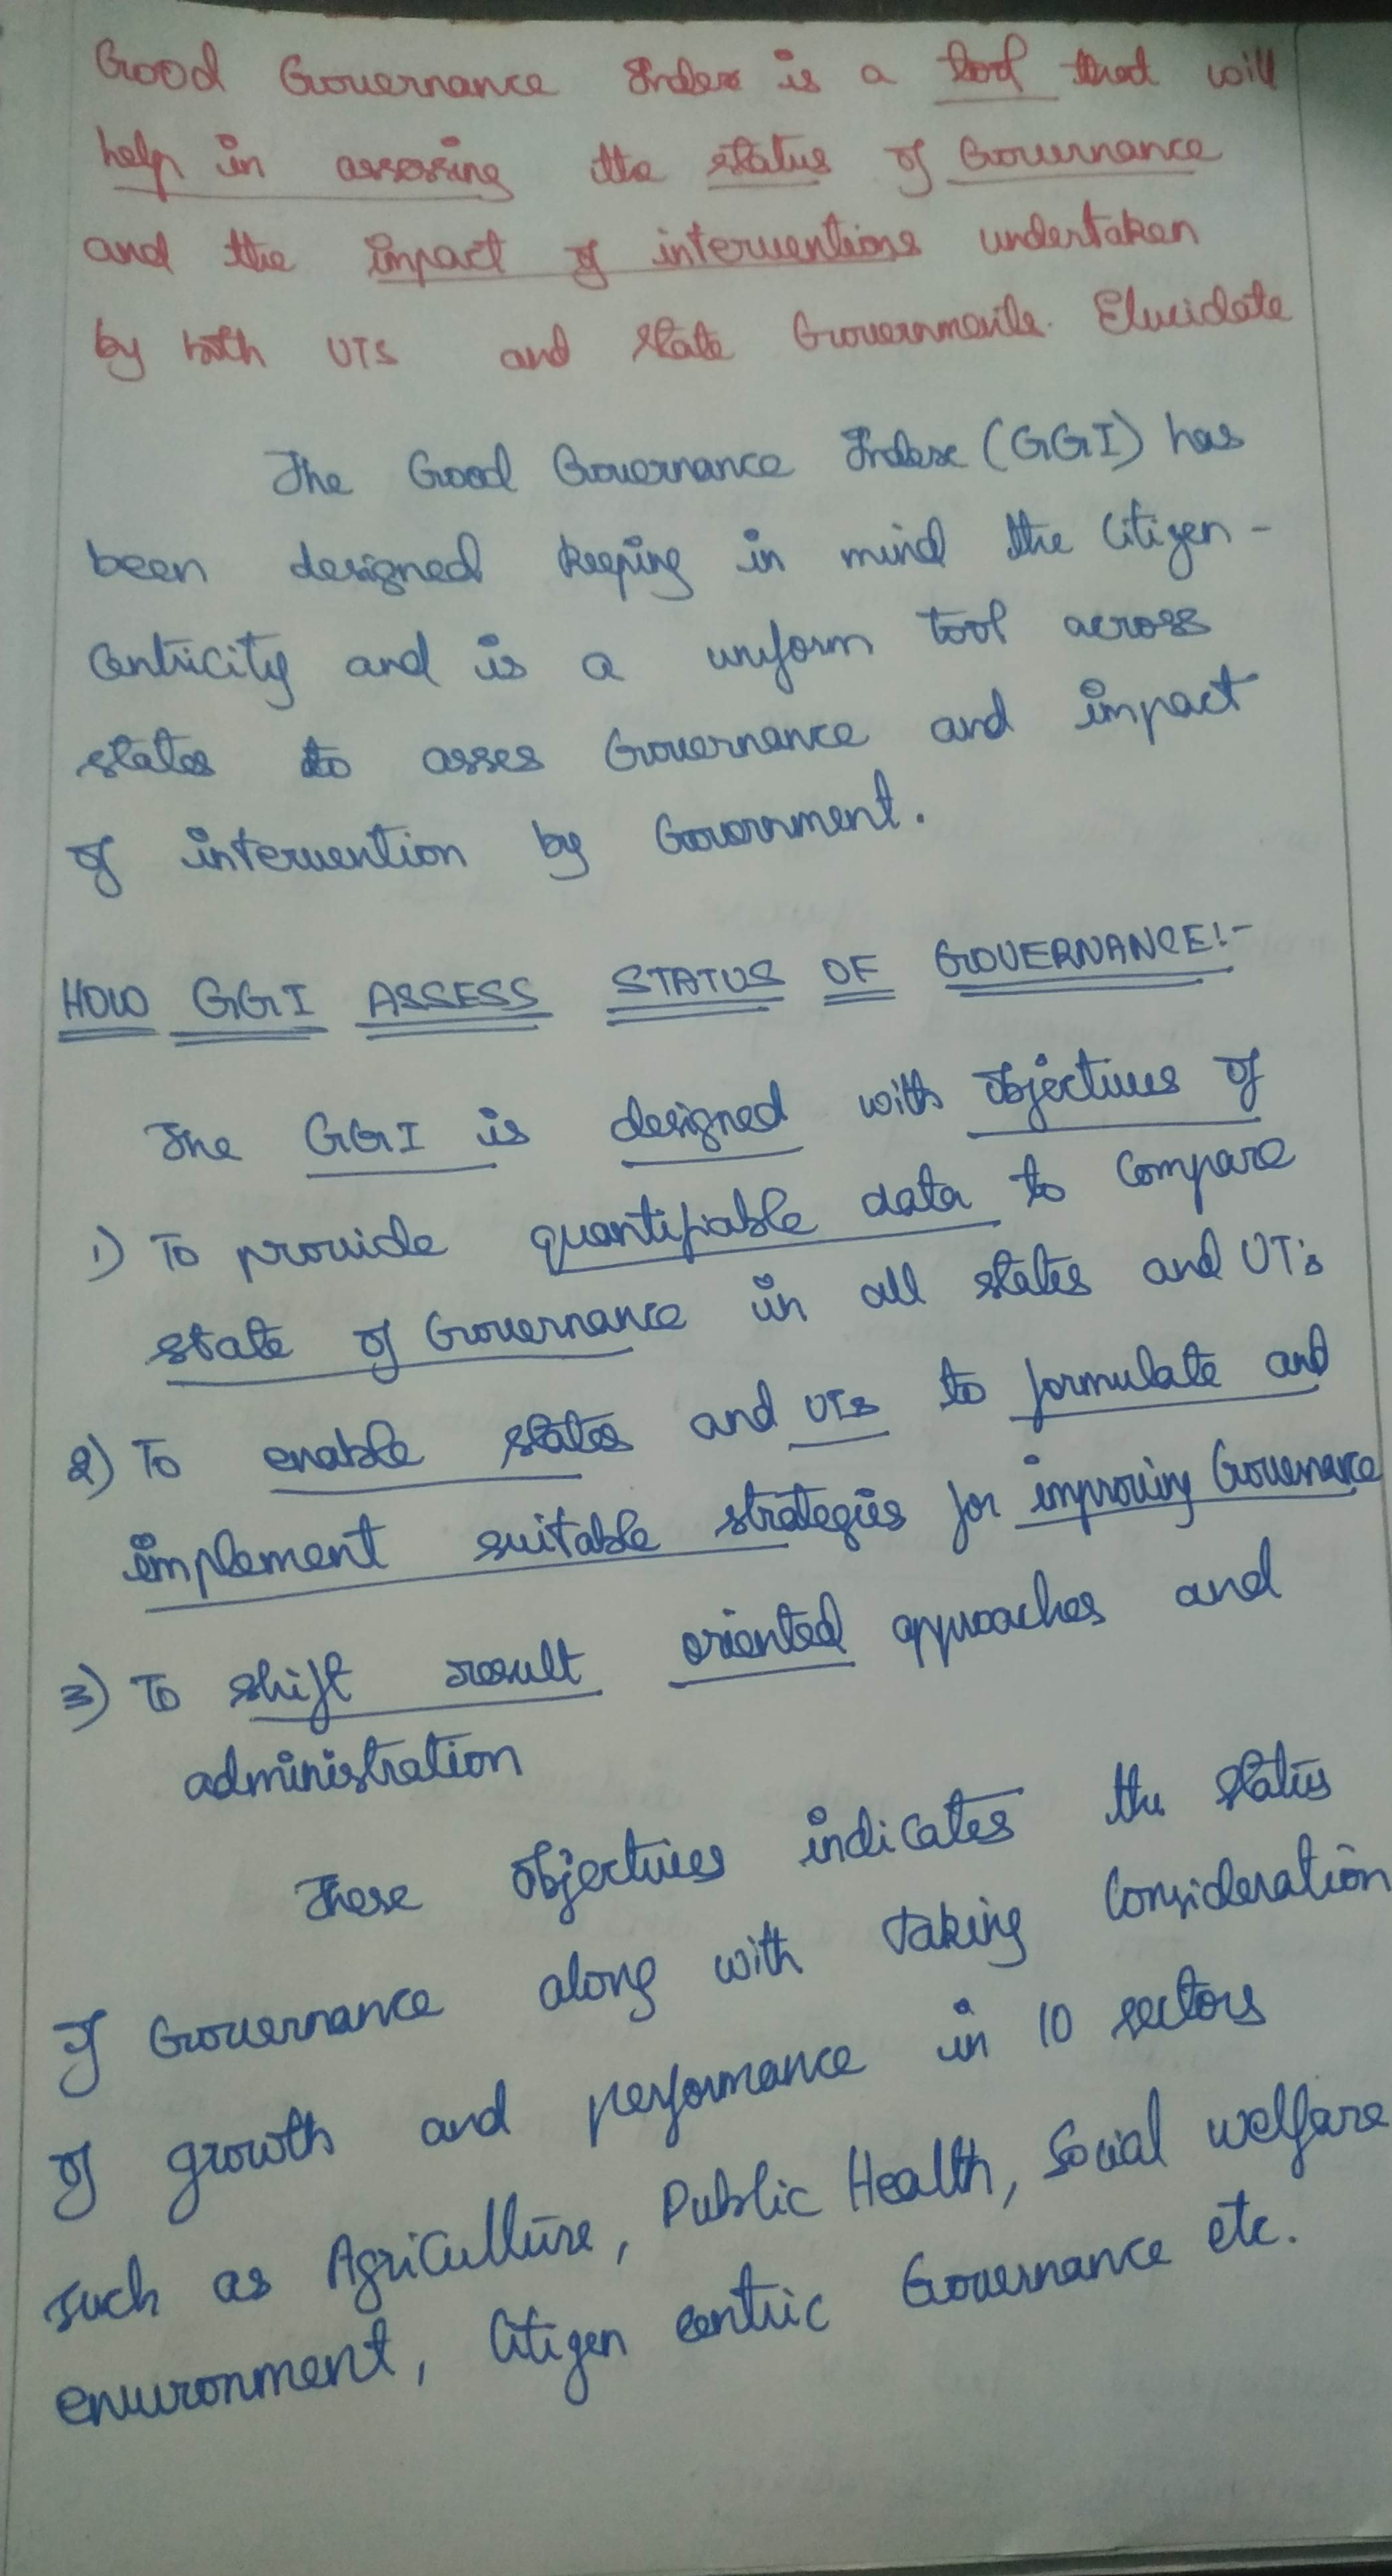 Good Governance Index is a tool that will
help in assessing the status of Governance
and the impact of interventions undertaken
by both UTs and State Governments. Elucidate
The Good Governance Index (GGI) has
been designed keeping in mind the Citizen -
Centricity and is a uniform tool across
states to asses Governance and impact
of intervention by Government.
HOW GGI ASSESS STATUS OF GOVERNANCE:-
The GGI is designed with objectives of
1) To provide quantifiable data to compare
state of Governance in all states and UT's
2) To enable states and UTs to formulate and
implement suitable strategies for improving Governance
3) To shift result oriented approaches and
administration
These objectives indicates the status
of Governance along with taking consideration
of growth and performance in 10 sectors
such as Agriculture, Public Health, Social welfare
environment, Citizen centric Governance etc.